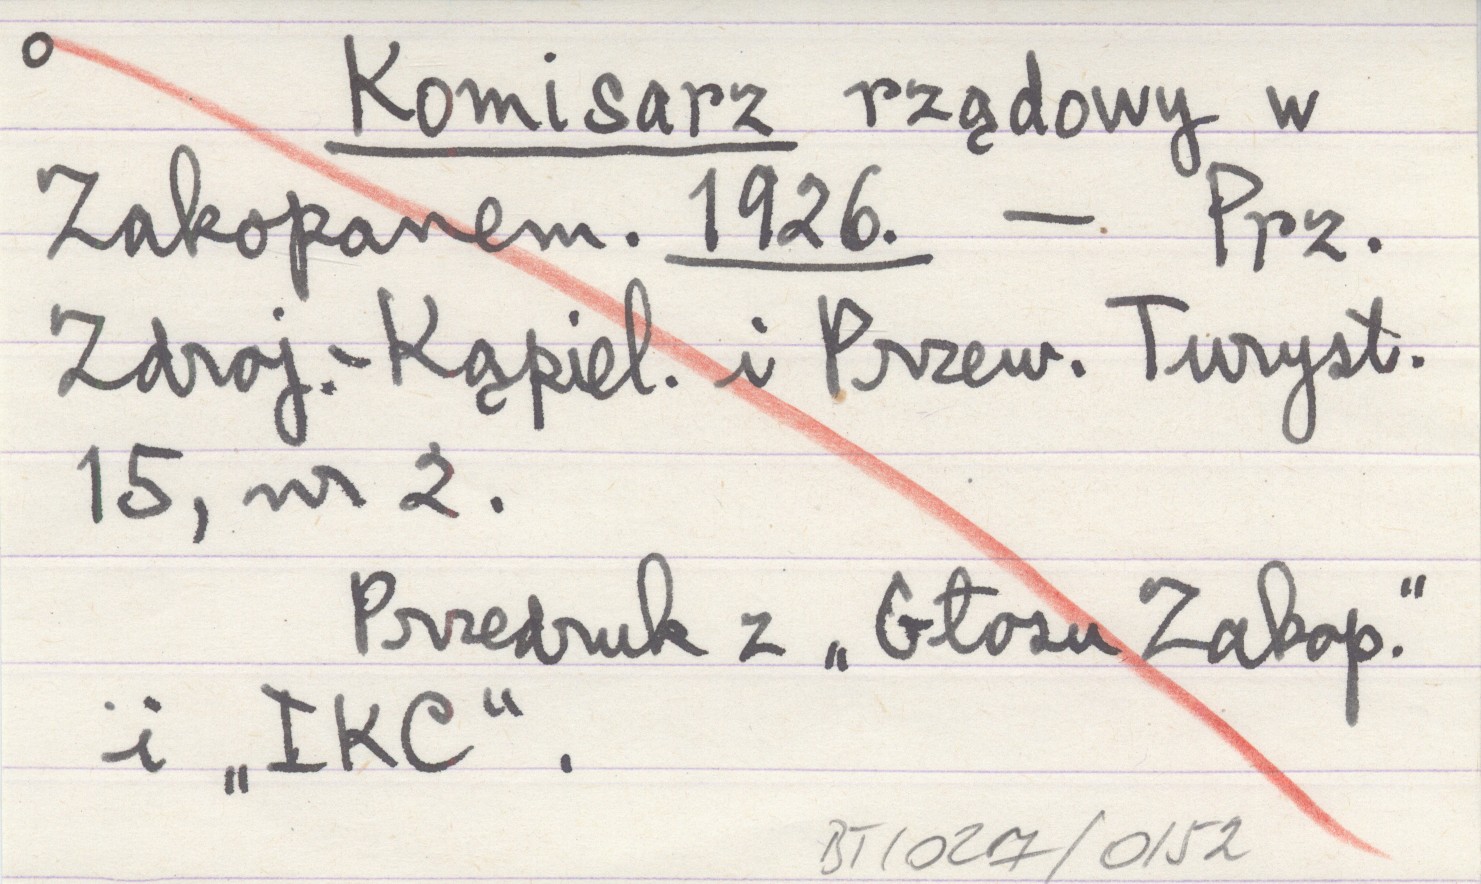 Komisarz rządowy w
Zakopanem. 1926. — Prz.
Zdroj.-Kąpiel. i Przew. Turyst.
15, nr 2.
Przedruk z „Głosu Zakop.“
i „IKC“.
BT/027/0152